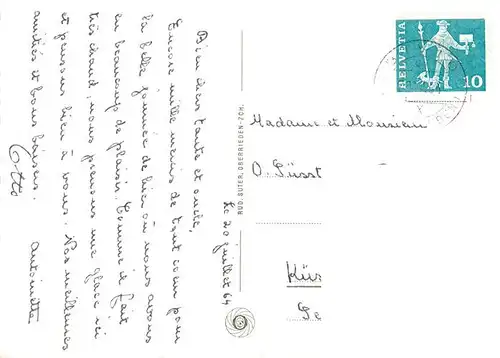 Le 20 juillet 64
Bien chers tante et oncle,
Encore mille mercis de tout coeur pour
la belle journée de hier où nous avons
eu beaucoup de plaisir. Comme il fait
très chaud, nous prenons une glace ici
et pensons bien à vous. Nos meilleures
amitiés et bons baisers.
Otto Antoinette
RUD. SUTER, OBERRIEDEN-ZCH.
HELVETIA
10
Madame et Monsieur
O. Süsst
Küs